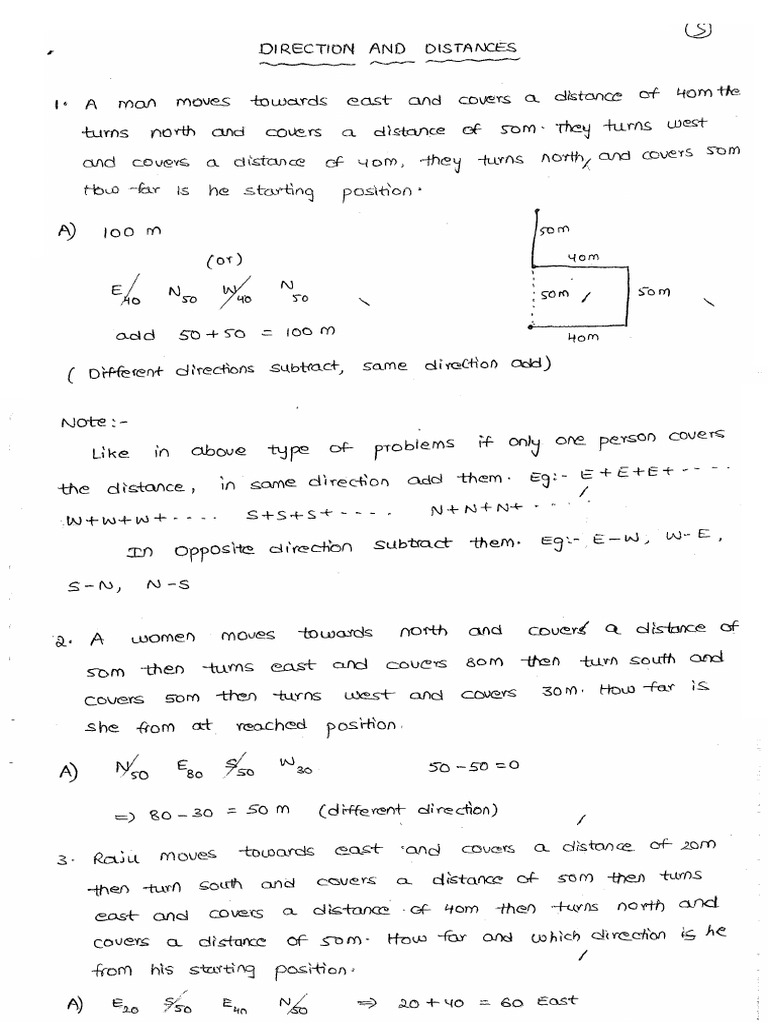 (5)
DIRECTION AND DISTANCES
1. A man moves towards east and covers a distance of 40m the
turns north and covers a distance of 50m. They turns west
and covers a distance of 40m, they turns north, and covers 50m
How far is he starting position.
A) 100 m
(or)
E/40 N50 W/40 N50
add 50+50 = 100 m
50m
40m
50m
50m
40m
( Different directions subtract, same direction add)
Note:-
Like in above type of problems if only one person covers
the distance, in same direction add them. Eg:- E+E+E+----.
W+W+W+-.... S+S+S+-.... N+N+N+-...
In opposite direction subtract them. Eg:- E-W, W-E,
S-N, N-S
2. A women moves towards north and covers a distance of
50m then turns east and covers 80m then turn south and
covers 50m then turns west and covers 30m. How far is
she from at reached position.
A) N/50 E80 S/50 W30 50-50=0
=> 80-30 = 50 m (different direction)
3. Raju moves towards east and covers a distance of 20m
then turn south and covers a distance of 50m then turns
east and covers a distance of 40m then turns north and
covers a distance of 50m. How far and which direction is he
from his starting position.
A) E20 S/50 E40 N/50 => 20+40 = 60 East